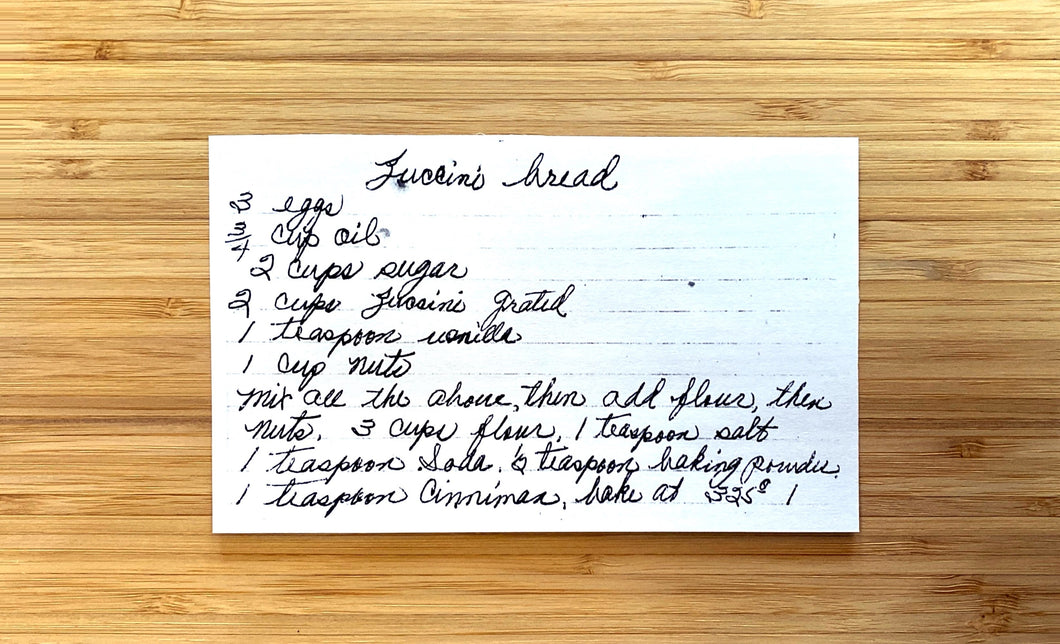 Zuccini bread
3 eggs
3/4 cup oil
2 cups sugar
2 cups Zuccini grated
1 teaspoon vanilla
1 cup nuts
mix all the above, then add flour, then
nuts. 3 cups flour, 1 teaspoon salt
1 teaspoon Soda, 1/2 teaspoon baking powder.
1 teaspoon Cinniman, bake at 325° 1